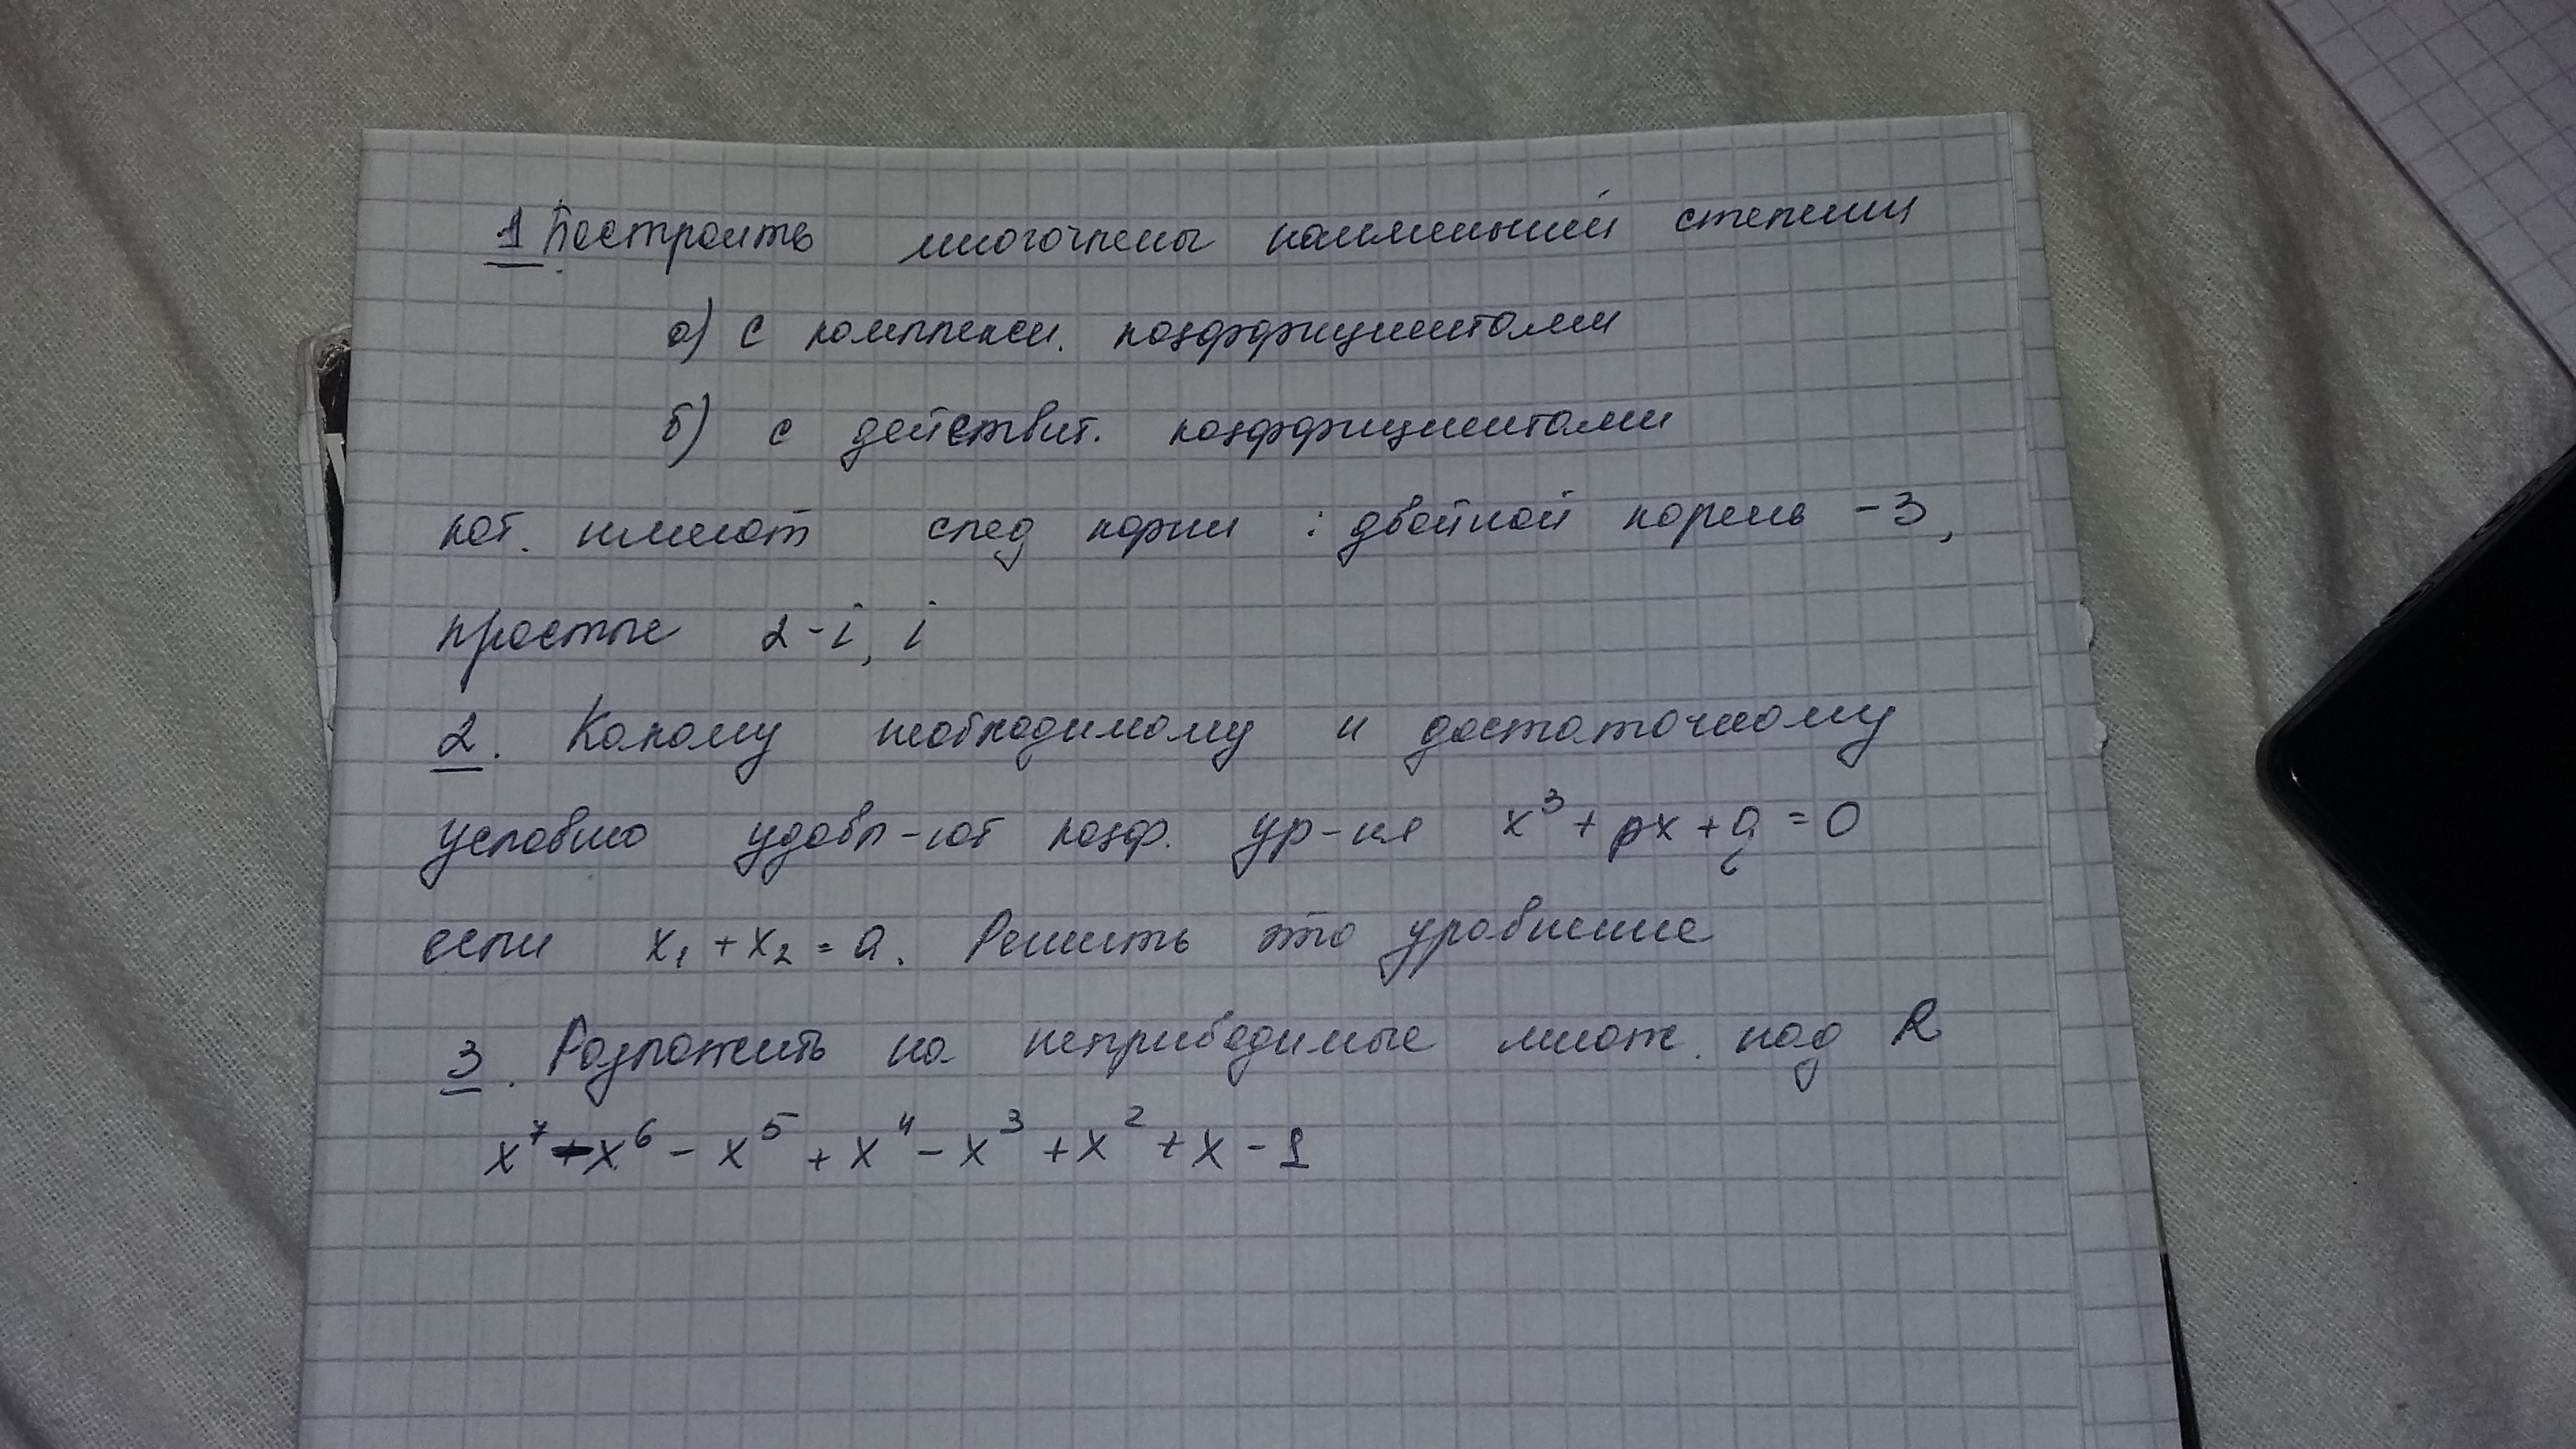 1 Построить многочлены наименьшей степени
а) с комплексн. коэффициентами
б) с действит. коэффициентами
кот. имеют след корни : двойной корень -3,
простые 2-i, i
2. Какому необходимому и достаточному
условию удовл-ют коэф. ур-ия x³ + px + q = 0
если x₁ + x₂ = a. Решить это уравнение
3. Разложить на неприводимые множ. над R
x⁷ - x⁶ - x⁵ + x⁴ - x³ + x² + x - 1